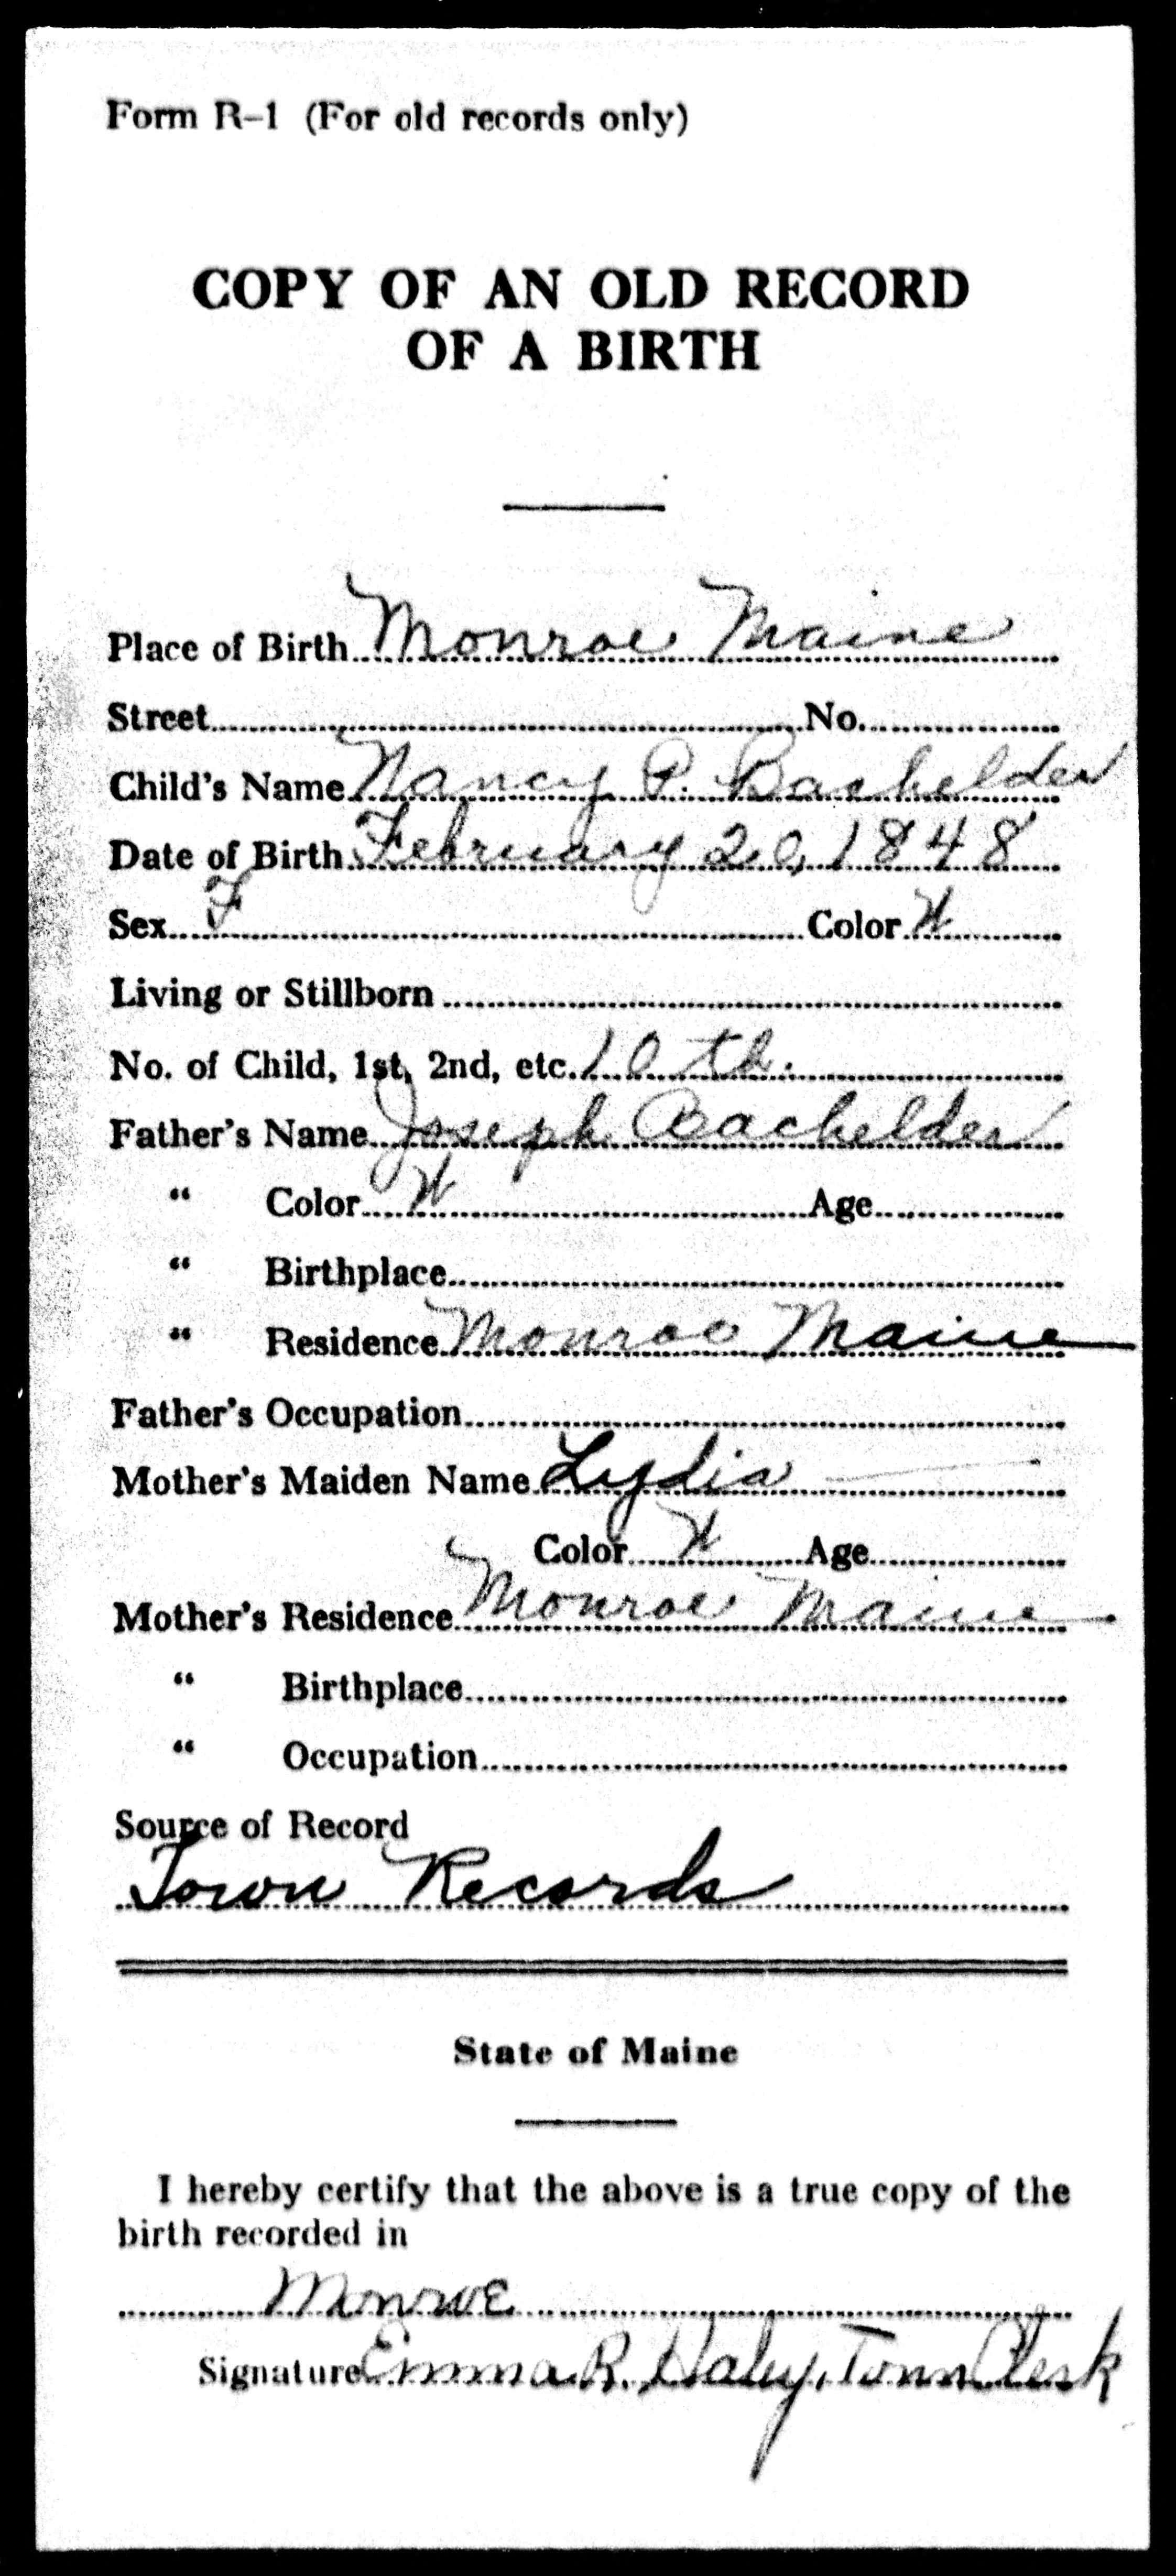 Form R-1 (For old records only)
COPY OF AN OLD RECORD
OF A BIRTH
Place of Birth Monroe Maine
Street No.
Child's Name Nancy P. Bachelder
Date of Birth February 20, 1848
Sex F Color W
Living or Stillborn
No. of Child, 1st, 2nd, etc. 10th.
Father's Name Joseph Bachelder
“ Color W Age
“ Birthplace
“ Residence Monroe Maine
Father's Occupation
Mother's Maiden Name Lydia
Color W Age
Mother's Residence Monroe Maine
“ Birthplace
“ Occupation
Source of Record
Town Records
State of Maine
I hereby certify that the above is a true copy of the
birth recorded in
Monroe
Signature Emma R. Haley, Town Clerk